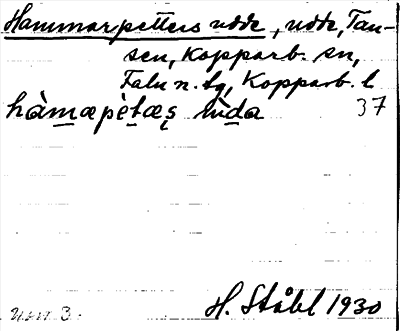 Hammarpetters udde, udde, Tan-
sen, Kopparb. sn,
Falu n. tg, Kopparb. l
hàmæpètæş ùda 37
H. Ståhl 1930